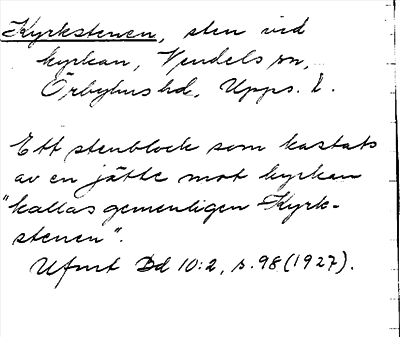 Kyrkstenen, sten vid
kyrkan, Vendels sn,
Örbyhus hd, Upps. l.
Ett stenblock som kastats
av en jätte mot kyrkan
"kallas gemenligen Kyrk-
stenen".
Ufmt Bd 10:2, s. 98 (1927).